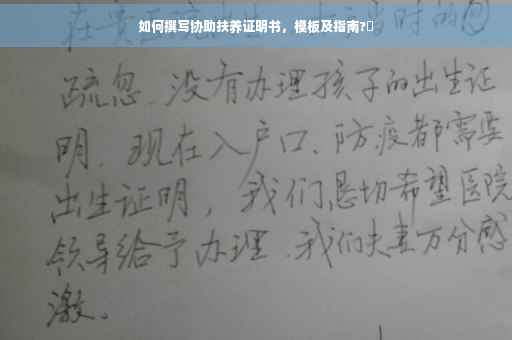 如何撰写协助扶养证明书，模板及指南?▯
在 当时的
疏忽、没有办理孩子的出生证
明、现在入户口、防疫都需要
出生证明，我们恳切希望医院
领导给予办理、我们夫妻万分感
激。